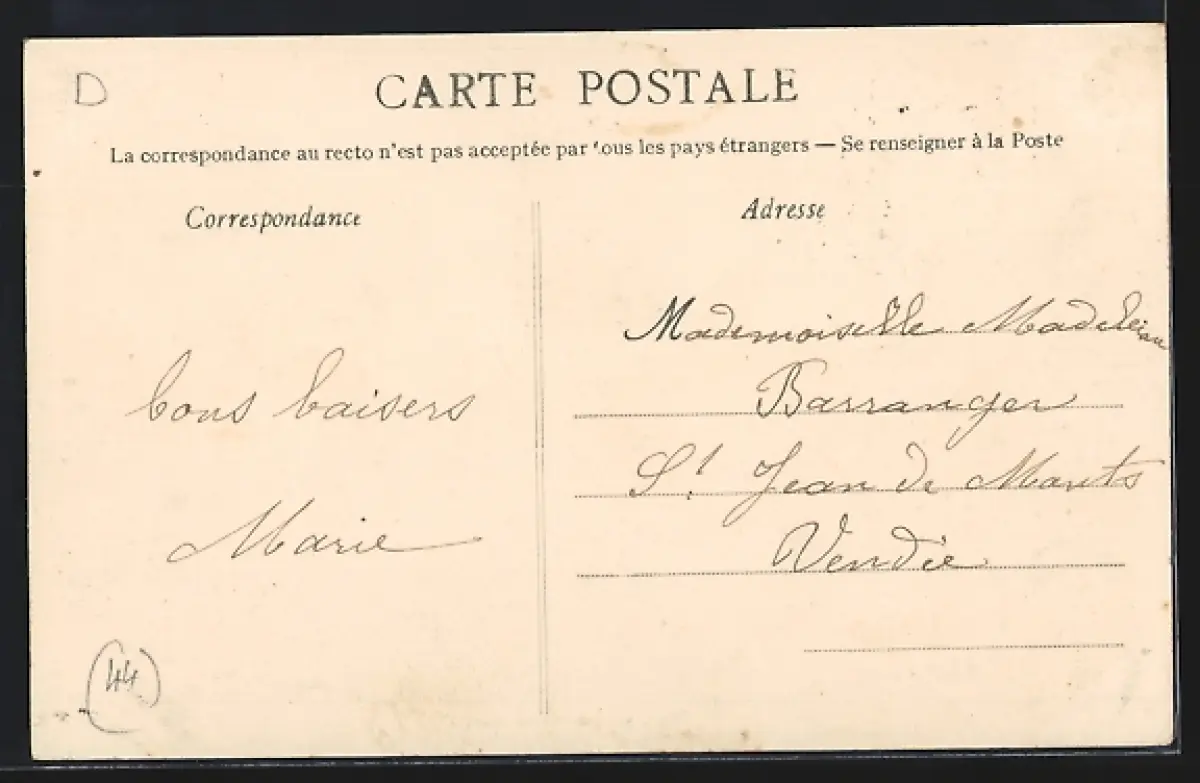 D
CARTE POSTALE
La correspondance au recto n'est pas acceptée par tous les pays étrangers — Se renseigner à la Poste
Correspondance
bons baisers
Marie
(44)
Adresse
Mademoiselle Madeleine
Barranger
St Jean de Monts
Vendée